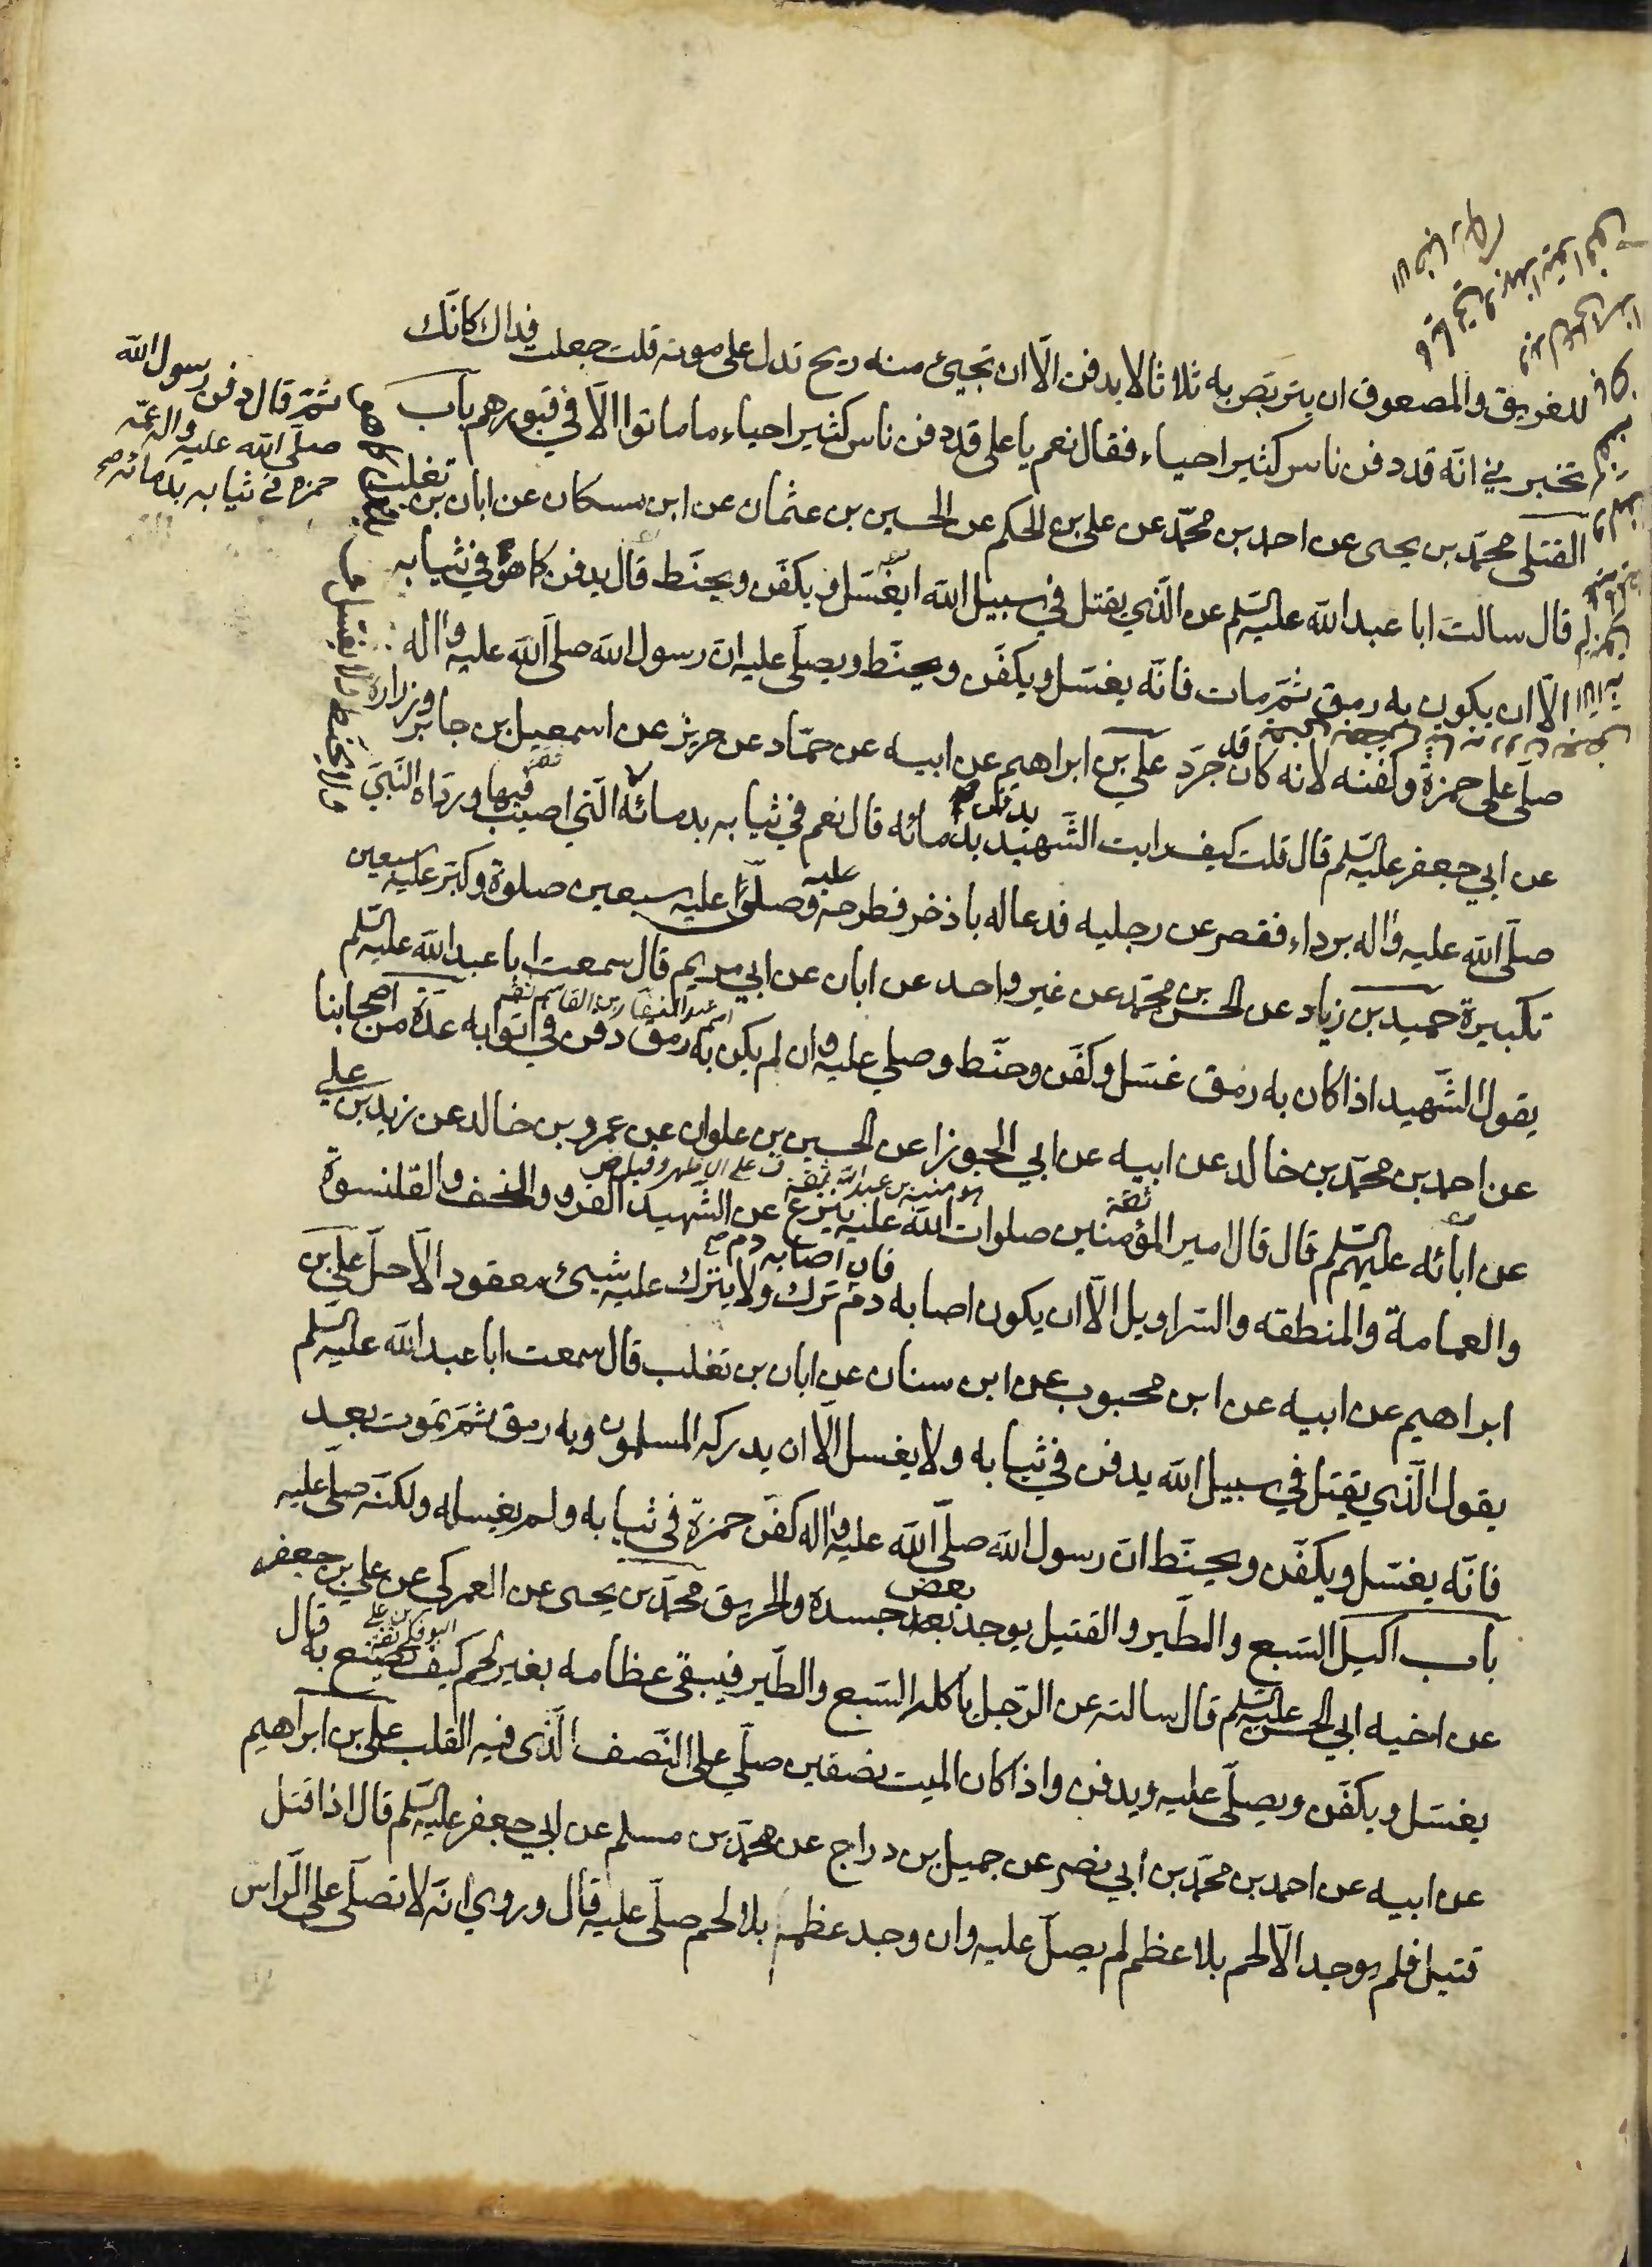 للغريق والمصعوق ان يتربص به ثلاثا لا يدفن الّا ان تجيئ منه ريح تدل على موته قلت جعلت فداك كانّك
تخبرني انّه قد دفن ناس كثير احياء فقال نعم يا علي قد دفن ناس كثير احياء ما ماتوا الّا في قبورهم باب
القتلى محمّد بن يحيى عن احمد بن محمّد عن علي بن الحكم عن الحسين بن عثمان عن ابن مسكان عن ابان بن تغلب
قال سالت ابا عبد الله عليه السّلم عن الّذي يقتل في سبيل الله ايغسّل ويكفّن ويحنّط قال يدفن كما هو في ثيابه
الّا ان يكون به رمق ثمّ مات فانّه يغسّل ويكفّن ويحنّط ويصلّى عليه انّ رسول الله صلّى الله عليه واله
صلّى على حمزة وكفّنه لانه كان قد جرّد علي بن ابراهيم عن ابيه عن حمّاد عن حريز عن اسمعيل بن جابر وزرارة
عن ابي جعفر عليه السّلم قال قلت كيف رايت الشّهيد يدفن بدمائه قال نعم في ثيابه بدمائه الّتي اصيب فيها وردّاه النّبيّ
صلّى الله عليه واله برداء فقصر عن رجليه فدعا له باذخر فطرحه عليه وصلّى عليه سبعين صلوة وكبّر عليه سبعين
تكبيرة حميد بن زياد عن الحسن بن محمّد عن غير واحد عن ابان عن ابي مريم قال سمعت ابا عبد الله عليه السّلم
اسمه عبد الغفار بن القاسم ثقة
يقول الشّهيد اذا كان به رمق غسّل وكفّن وحنّط وصلي عليه وان لم يكن به رمق دفن في اثوابه عدّة من اصحابنا
عن احمد بن محمّد بن خالد عن ابيه عن ابي الجوزا عن الحسين بن علوان عن عمرو بن خالد عن زيد بن علي
هو منبه بن عبد الله ثقة
عن ابائه عليهم السّلم قال قال امير المؤمنين صلوات الله عليه ينزع عن الشّهيد الفرو والخف والقلنسوة
والعمامة والمنطقه والسّراويل الّا ان يكون اصابه دم فان اصابه دم ترك ولا يترك عليه شيئ معقود الّا حلّ علي بن
ابراهيم عن ابيه عن ابن محبوب عن ابن سنان عن ابان بن تغلب قال سمعت ابا عبد الله عليه السّلم
يقول الّذي يقتل في سبيل الله يدفن في ثيابه ولا يغسل الّا ان يدركه المسلمون وبه رمق ثمّ يموت بعد
فانّه يغسّل ويكفّن ويحنّط انّ رسول الله صلّى الله عليه واله كفّن حمزة في ثيابه ولم يغسله ولكنّه صلّى عليه
باب اكيل السّبع والطّير والقتيل يوجد بعض جسده والحريق محمّد بن يحيى عن العمركي عن علي بن جعفر
عن اخيه ابي الحسن عليه السّلم قال سالته عن الرّجل ياكله السّبع والطّير فيبقى عظامه بغير لحم كيف يصنع به قال
يغسّل ويكفّن ويصلّى عليه ويدفن واذا كان الميت نصفين صلّي على النّصف الّذى فيه القلب علي بن ابراهيم
عن ابيه عن احمد بن محمّد بن ابي نصر عن جميل بن دراج عن محمّد بن مسلم عن ابي جعفر عليه السّلم قال اذا قتل
قتيل فلم يوجد الّا لحم بلا عظم لم يصلّ عليه وان وجد عظم بلا لحم صلّى عليه قال وروي انّه لا تصلّى على الرّاس
ثمّ قال دفن رسول الله
صلّى الله عليه واله عمّه
حمزة في ثيابه بدمائه صح